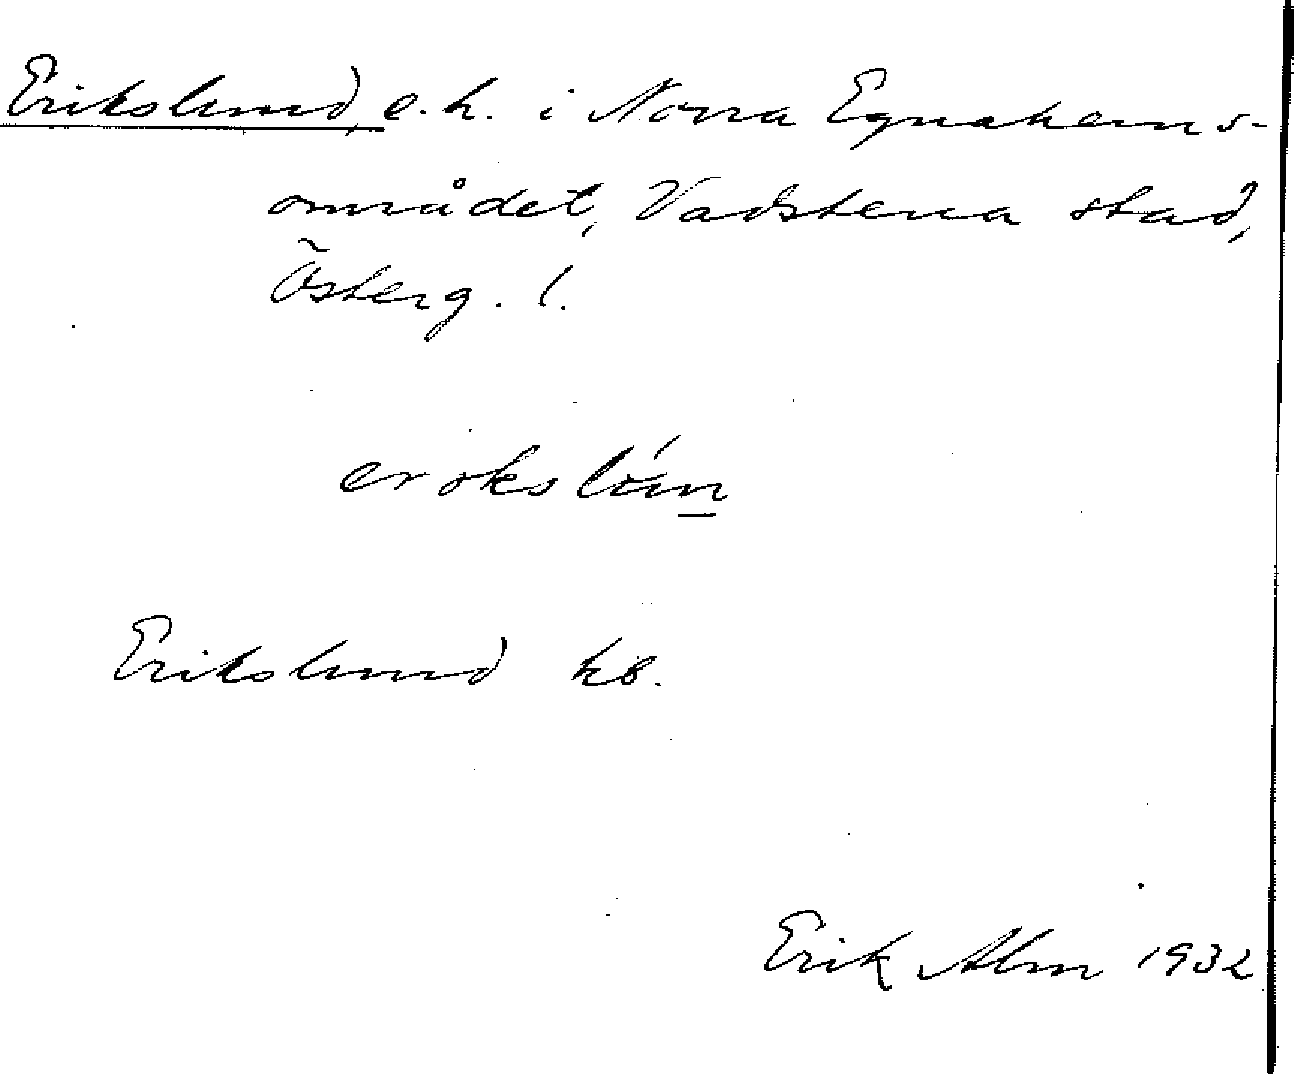 Erikslund, e.h. i Norra Egnahems-
området, Vadstena stad,
Österg. l.
Erikslund kb.
Erik Alm 1932